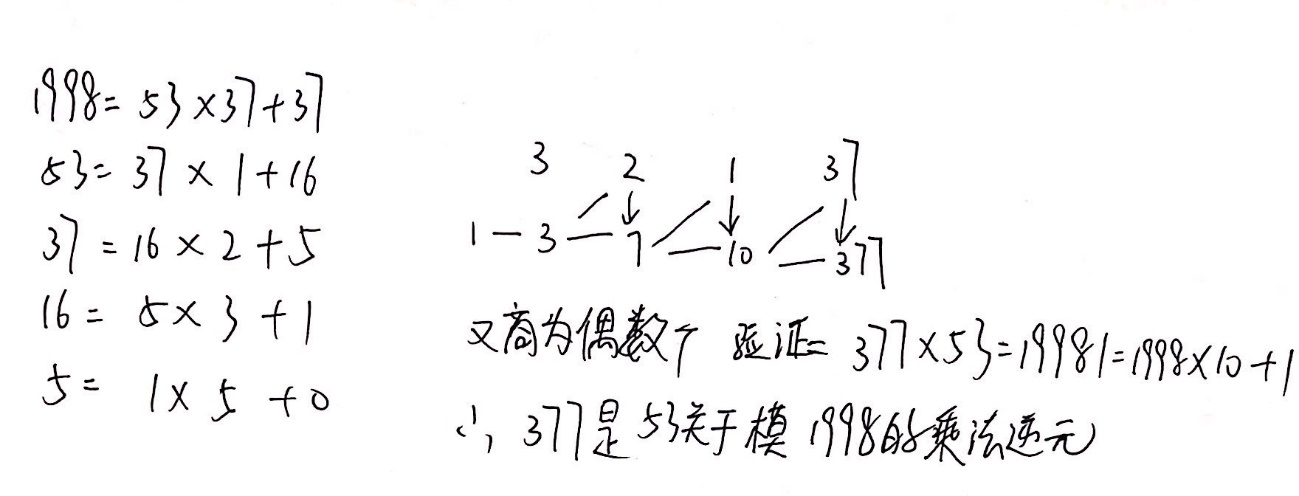 1998=53×37+37
53=37×1+16
37=16×2+5
16=5×3+1
5=1×5+0
3 2 1 37
1-3-7-10-377
又商为偶数个 验证= 377×53=19981=1998×10+1
∴ 377是53关于模1998的乘法逆元